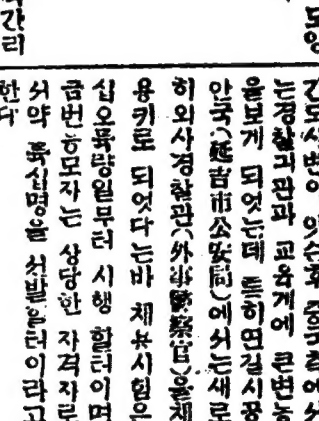 모양
간리
간도사변이 잇슨후 중국측에서
는경찰긔관과 교육게에 큰변동
을보게 되엿는데 특히연길시공
안국(延吉市公安局)에서는새로
히외사경찰관(外事警察官)을채
용키로 되엿다는바 채用시험은
십오륙량일부터 시행 할터이며
금번응모자는 상당한 자격자로
서약 륙십명을 선발할터이라고
한다